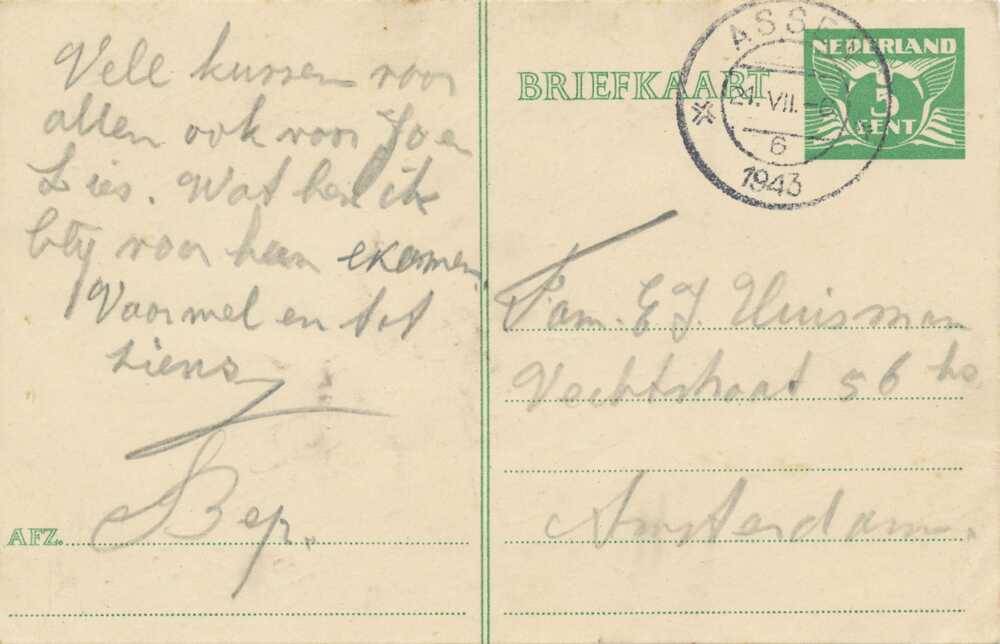 Vele kussen voor
allen ook voor Jo en
Lies. Wat ben ik
bly voor hun examen.
Vaarwel en tot
ziens
Bep.
AFZ.
BRIEFKAART
NEDERLAND
5
CENT
ASSEN
21. VII.
6
1943
Fam. E J. Huisman
Vechtstraat 56 hs
Amsterdam.